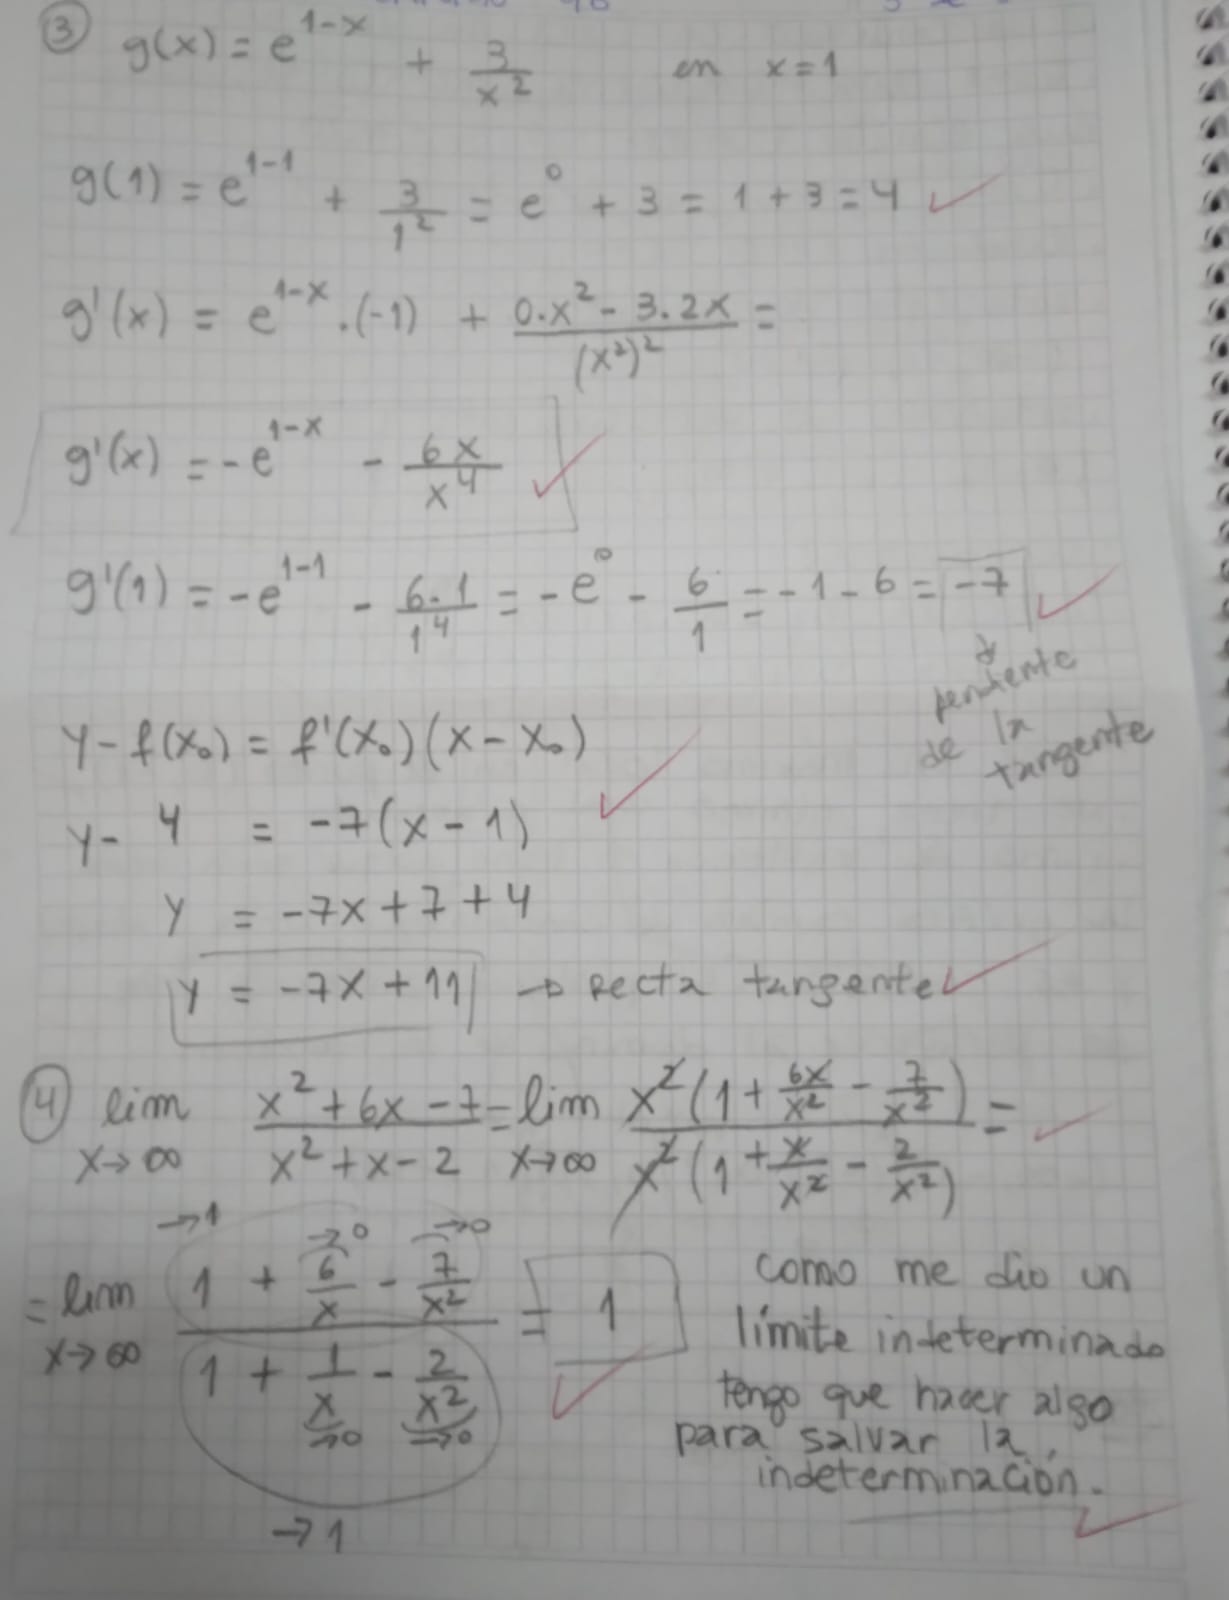 ③ g(x) = e^(1-x) + 3/x² en x = 1
g(1) = e^(1-1) + 3/1² = e⁰ + 3 = 1 + 3 = 4 ✓
g'(x) = e^(1-x) . (-1) + (0.x² - 3.2x)/(x²)² =
g'(x) = -e^(1-x) - 6x/x⁴ ✓
g'(1) = -e^(1-1) - 6.1/1⁴ = -e⁰ - 6/1 = -1 - 6 = -7 ✓
pendiente
de la
tangente
y - f(x₀) = f'(x₀)(x - x₀)
y - 4 = -7(x - 1) ✓
y = -7x + 7 + 4
y = -7x + 11 → Recta tangente ✓
④ lim x→∞ (x² + 6x - 7)/(x² + x - 2) = lim x→∞ x²(1 + 6x/x² - 7/x²)/x²(1 + x/x² - 2/x²) = ✓
→1 →0 →0
= lim x→∞ (1 + 6/x - 7/x²)/(1 + 1/x - 2/x²) = 1 ✓
→0 →0
→1
Como me dio un
límite indeterminado
tengo que hacer algo
para salvar la
indeterminación. ✓